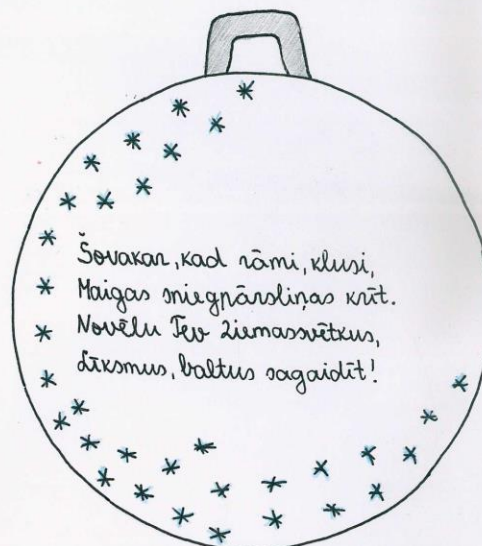 Šovakar, kad rāmi, klusi,
Maigas sniegpārsliņas krīt.
Novēlu Tev Ziemassvētkus,
Līksmus, baltus sagaidīt!